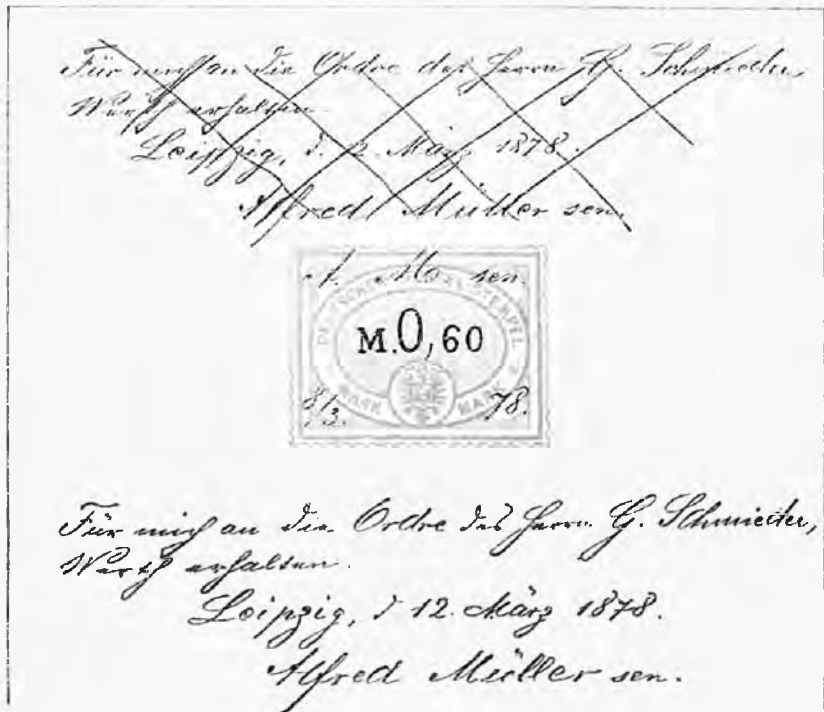 Für mich an die Ordre des Herrn G. Schmieder,
Werth erhalten.
Leipzig, d. 12. März 1878.
Alfred Müller sen.
A. M. sen.
M.0,60
MARK MARK
8/3. 78.
Für mich an die Ordre des Herrn G. Schmieder,
Werth erhalten.
Leipzig, d 12. März 1878.
Alfred Müller sen.